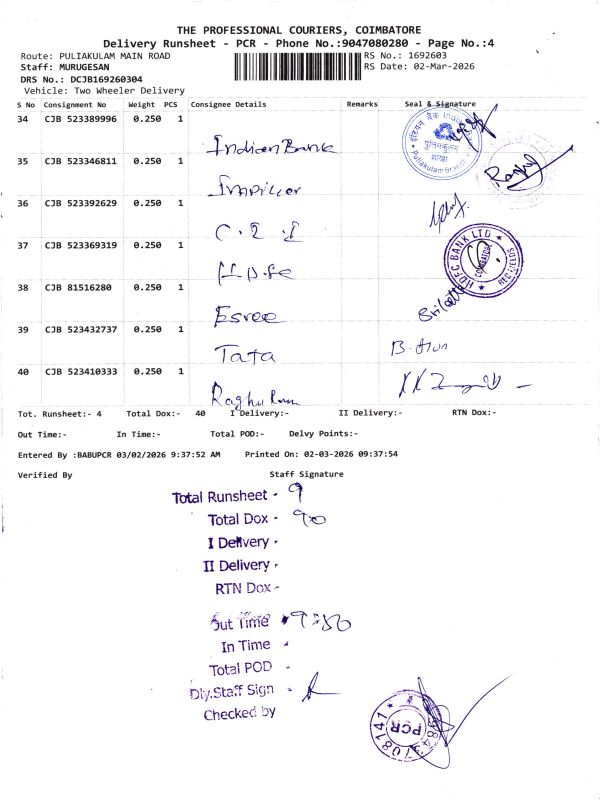 THE PROFESSIONAL COURIERS, COIMBATORE
Delivery Runsheet - PCR - Phone No.:9047080280 - Page No.:4
Route: PULIAKULAM MAIN ROAD RS No.: 1692603
Staff: MURUGESAN RS Date: 02-Mar-2026
DRS No.: DCJB169260304
Vehicle: Two Wheeler Delivery
S No Consignment No Weight PCS Consignee Details Remarks Seal & Signature
34 CJB 523389996 0.250 1 Indian Bank
इंडियन बैंक Indian
पुलियकुलम
शाखा
Puliakulam Branch
35 CJB 523346811 0.250 1
36 CJB 523392629 0.250 1
37 CJB 523369319 0.250 1
HDFC BANK LTD
COIMBATORE
38 CJB 81516280 0.250 1 Esree
39 CJB 523432737 0.250 1 Tata
40 CJB 523410333 0.250 1 Raghu Ram
Tot. Runsheet:- 4 Total Dox:- 40 I Delivery:- II Delivery:- RTN Dox:-
Out Time:- In Time:- Total POD:- Delvy Points:-
Entered By :BABUPCR 03/02/2026 9:37:52 AM Printed On: 02-03-2026 09:37:54
Verified By Staff Signature
Total Runsheet - 9
Total Dox - 90
I Delivery -
II Delivery -
RTN Dox -
Out Time - 9:50
In Time -
Total POD -
Dly.Staff Sign -
Checked by
PCR